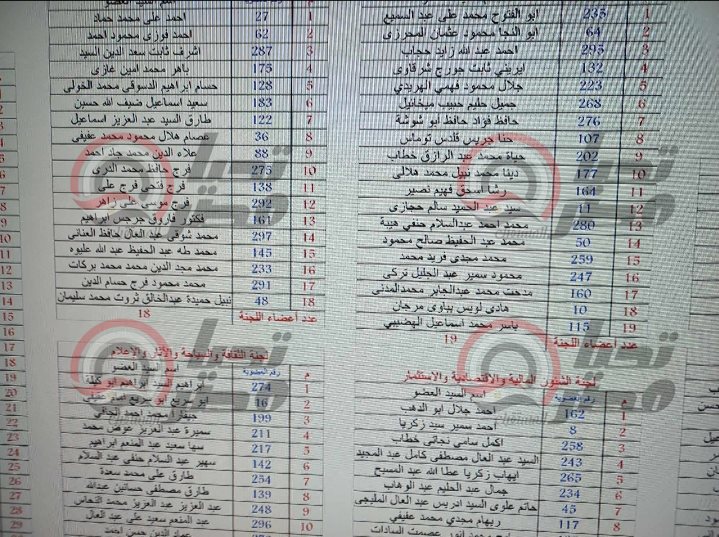 1 235 ابو الفتوح محمد على عبد السميع
2 64 ابو النجا محمود عثمان المحرزى
3 295 احمد عبد الله زايد حجاب
4 132 ايرينى ثابت جورج شرقاوى
5 223 جلال محمود فهمى الهريدي
6 268 جميل حليم حبيب ميخائيل
7 276 حافظ فؤاد حافظ ابو شوشة
8 107 حنا جريس قلدس توماس
9 202 حياة محمد عبد الرازق خطاب
10 177 دينا محمد نبيل محمد هلالى
11 164 رشا اسحق فهيم نصير
12 11 سيد عبد الحميد سالم حجازى
13 280 محمد احمد عبدالسلام حنفى هيبة
14 50 محمد عبد الحفيظ صالح محمود
15 259 محمد مجدى فريد محمد
16 247 محمود سمير عبد الجليل تركى
17 160 مدحت محمد عبدالجابر محمدالمدنى
18 10 هادى لويس بباوى مرجان
19 115 ياسر محمد اسماعيل الهضيبي
عدد اعضاء اللجنة 19
لجنة الشئون المالية والاقتصادية والاستثمار
م رقم العضوية اسم السيد العضو
1 162 احمد جلال ابو الدهب
2 8 احمد سمير سيد زكريا
3 258 اكمل سامى نجاتى خطاب
4 243 السيد عبد العال مصطفى كامل عبد المجيد
5 265 ايهاب زكريا عطا الله عبد المسيح
6 234 جمال عبد الحليم عبد الوهاب
7 45 حاتم علوى السيد ادريس عبد العال المليجى
8 117 ريهام مجدي محمد عفيفي
عصمت السادات
اسم السيد العضو
1 27 احمد على محمد حماد
2 62 احمد فوزى محمود احمد
3 287 اشرف ثابت سعد الدين السيد
4 175 باهر محمد امين غازى
5 128 حسام ابراهيم الدسوقى محمد الخولى
6 183 سعيد اسماعيل ضيف الله حسين
7 122 طارق السيد عبد العزيز اسماعيل
8 36 عصام هلال محمود محمد عفيفى
9 88 علاء الدين محمد جاد احمد
10 275 فرج حافظ محمد الدرى
11 138 فرج فتحى فرج على
12 292 فرج موسى على زاهر
13 161 فكتور فاروق جرجس ابراهيم
14 297 محمد شوقى عبد العال حافظ العنانى
15 145 محمد طه عبد الحفيظ عبد الله عليوه
16 233 محمد مجد الدين محمد محمد بركات
17 291 محمد محمود فرج حسام الدين
18 48 نبيل حميدة عبدالخالق ثروت محمد سليمان
عدد أعضاء اللجنة 18
لجنة الثقافة والسياحة والآثار والاعلام
م رقم العضوية اسم السيد العضو
1 274 ابراهيم السيد ابراهيم ابو كيلة
2 16 ابو سريع امام
3 199 جيفارا محمد احمد الجافى
4 211 سميرة عبد العزيز عوض محمد
5 217 سها سعيد عبد المنعم ابراهيم
6 142 سهير عبد السلام حنفى عبد السلام
7 254 طارق على محمد سعدة
8 139 طارق مصطفى حسانين عبدالله
9 248 عبد العزيز عبد العزيز محمد النحاس
10 296 عبد المنعم سعيد على عبد العال
عماد الدين حسن احمد
15
16
17
18
19
20
21
22
23
24
25
26
27
28
29
تحيا مصر
تحيا مصر
تحيا مصر
تحيا مصر